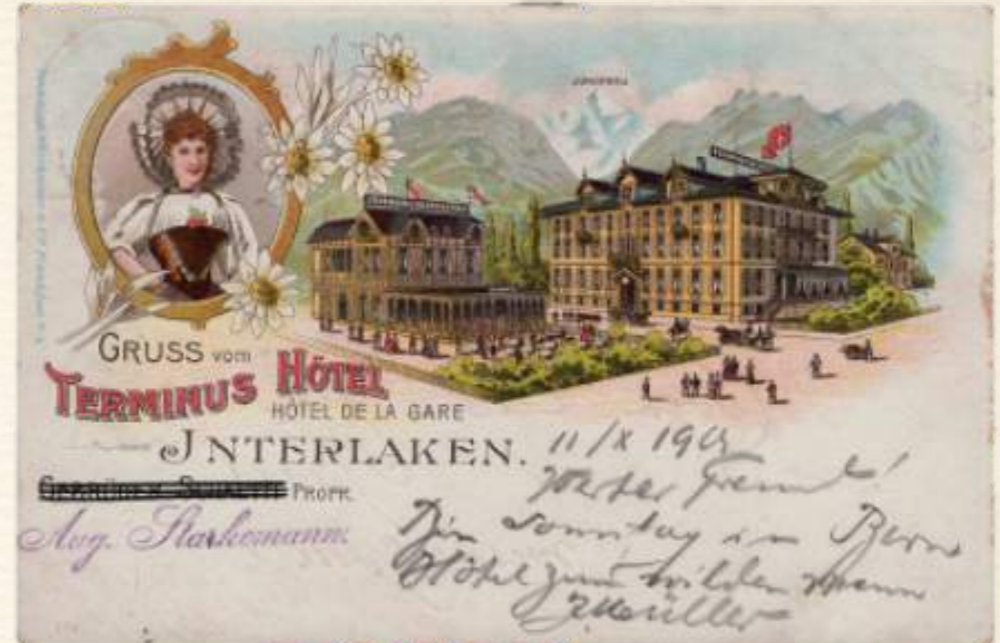 JUNGFRAU
GRUSS vom
TERMINUS HÔTEL
HÔTEL DE LA GARE
INTERLAKEN.
PROPR.
Aug. Starkemann.
11/X 190
Werter Freund!
Bin Sonntag in Bern
Hôtel zum wilden Mann
Müller